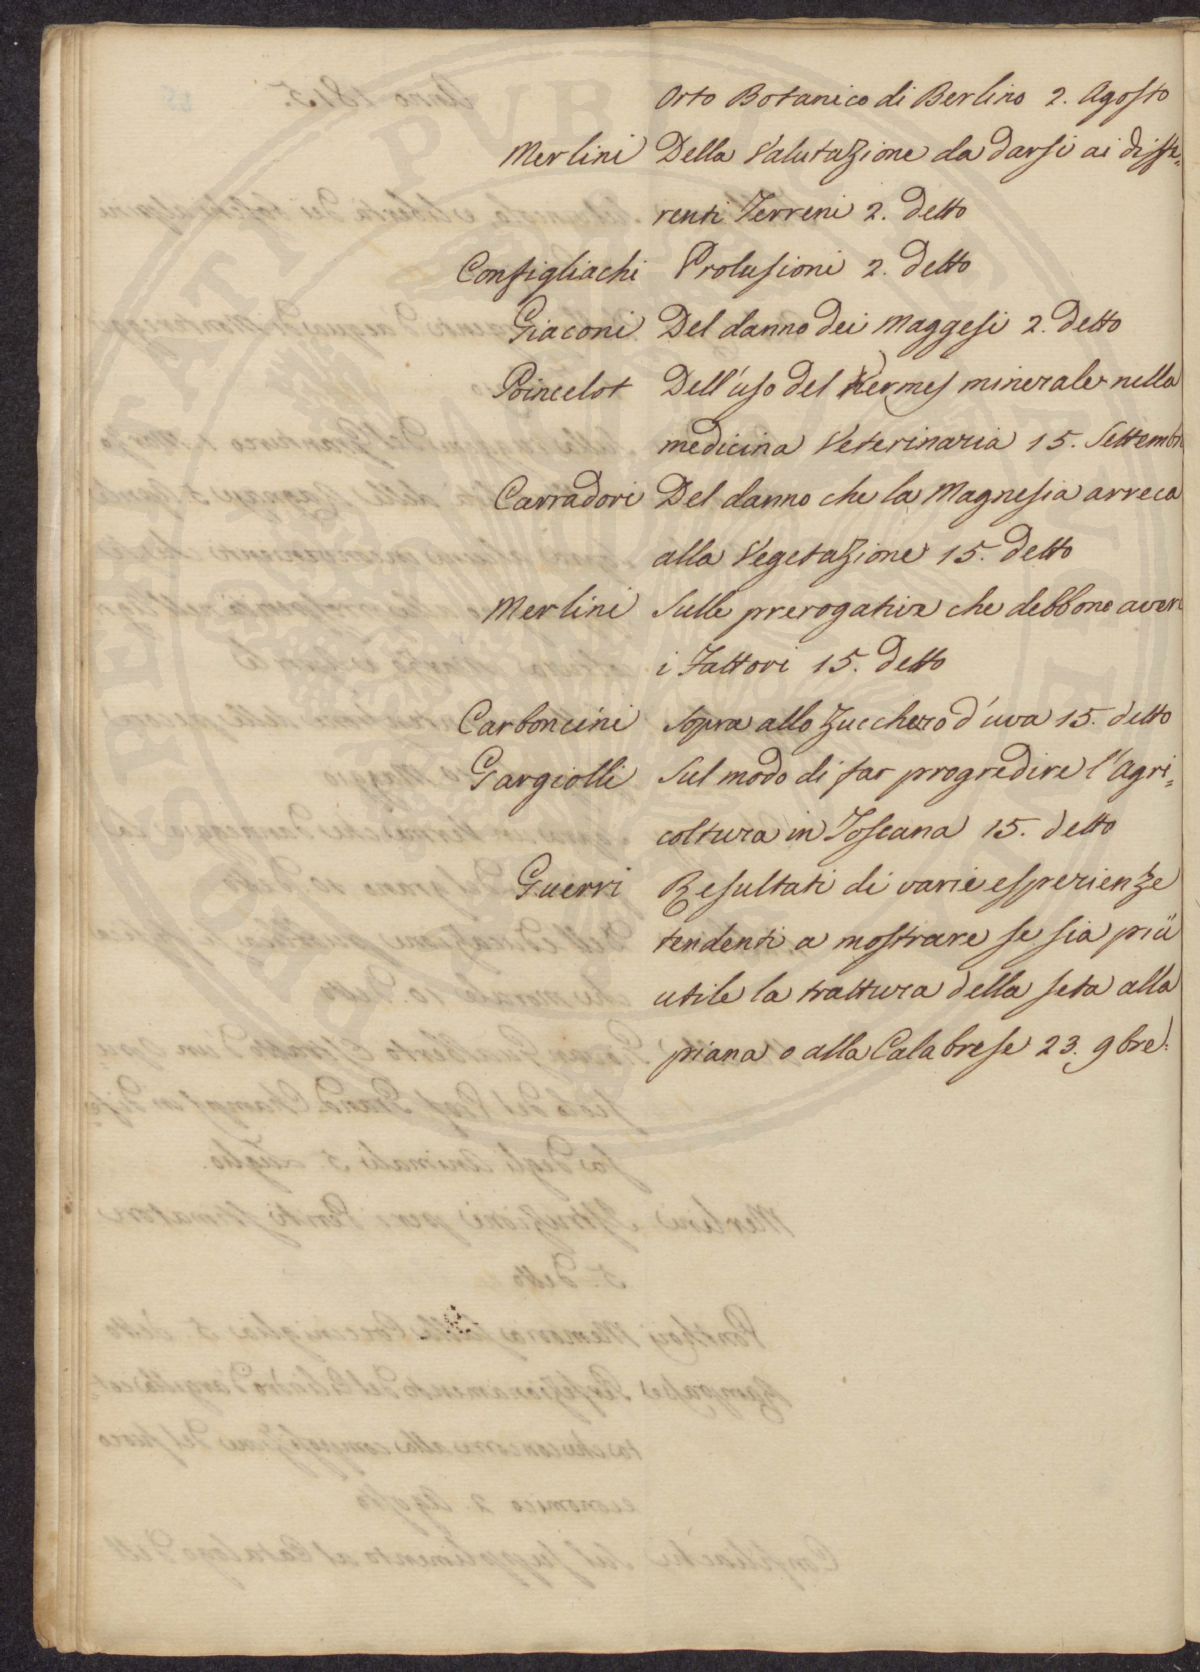 Orto Botanico di Berlino 2. Agosto
Merlini Della Valutazione da darsi ai diffe=
renti Terreni 2. detto
Configliachi Prolusioni 2. detto
Giaconi Del danno dei Maggesi 2. detto
Poincelot Dell'uso del Kermes minerale nella
medicina Veterinaria 15. Settembre
Carradori Del danno che la Magnesia arreca
alla Vegetazione 15. detto
Merlini Sulle prerogative che debbono avere
i Fattori 15. detto
Carboncini Sopra allo Zucchero d'uva 15. detto
Gargiolli Sul modo di far progredire l'Agri=
coltura in Toscana 15. detto
Guerri Resultati di varie esperienze
tendenti a mostrare se sia più
utile la trattura della seta alla
piana o alla Calabrese 23. 9bre.